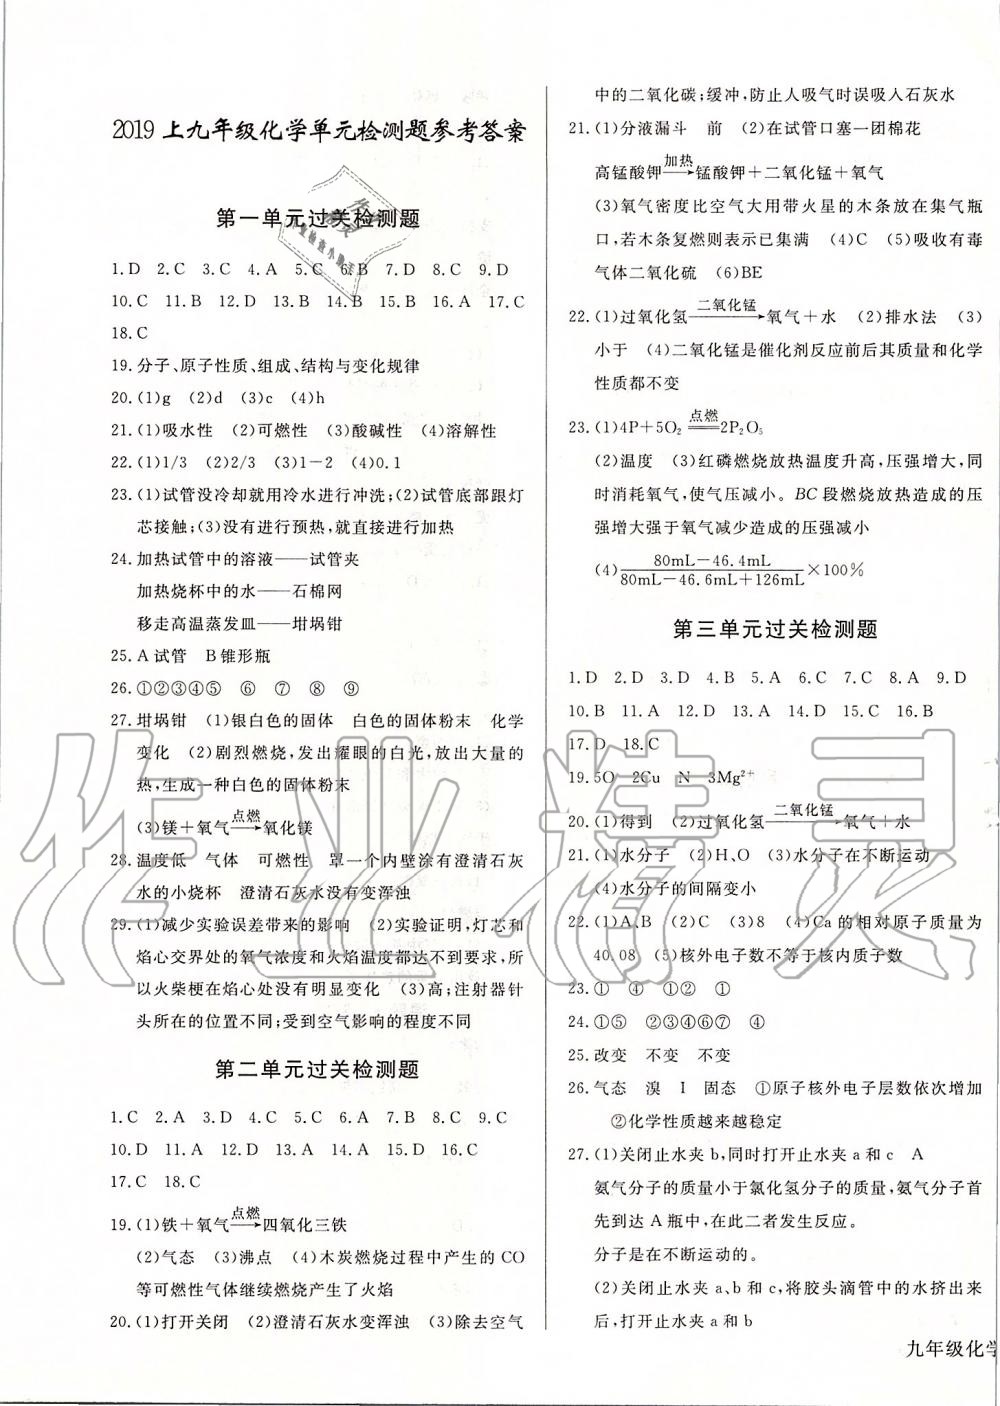 2019上九年级化学单元检测题参考答案
第一单元过关检测题
1.D 2.C 3.C 4.A 5.C 6.B 7.D 8.C 9.D
10.C 11.B 12.D 13.B 14.B 15.B 16.A 17.C
18.C
19.分子、原子性质、组成、结构与变化规律
20.(1)g (2)d (3)c (4)h
21.(1)吸水性 (2)可燃性 (3)酸碱性 (4)溶解性
22.(1)1/3 (2)2/3 (3)1-2 (4)0.1
23.(1)试管没冷却就用冷水进行冲洗;(2)试管底部跟灯
芯接触;(3)没有进行预热,就直接进行加热
24.加热试管中的溶液——试管夹
加热烧杯中的水——石棉网
移走高温蒸发皿——坩埚钳
25.A试管 B锥形瓶
26.①②③④⑤ ⑥ ⑦ ⑧ ⑨
27.坩埚钳 (1)银白色的固体 白色的固体粉末 化学
变化 (2)剧烈燃烧,发出耀眼的白光,放出大量的
热,生成一种白色的固体粉末
(3)镁+氧气 点燃→ 氧化镁
28.温度低 气体 可燃性 罩一个内壁涂有澄清石灰
水的小烧杯 澄清石灰水没有变浑浊
29.(1)减少实验误差带来的影响 (2)实验证明,灯芯和
焰心交界处的氧气浓度和火焰温度都达不到要求,所
以火柴梗在焰心处没有明显变化 (3)高;注射器针
头所在的位置不同;受到空气影响的程度不同
第二单元过关检测题
1.C 2.A 3.D 4.C 5.C 6.A 7.B 8.C 9.C
10.D 11.A 12.D 13.D 14.D 15.D 16.D
17.C 18.C
19.(1)铁+氧气 点燃→ 四氧化三铁
(2)气态 (3)沸点 (4)木炭燃烧过程中产生的CO
等可燃性气体继续燃烧产生了火焰
20.(1)打开关闭 (2)澄清石灰水变浑浊 (3)除去空气
中的二氧化碳;缓冲,防止人吸气时误吸入石灰水
21.(1)分液漏斗 前 (2)在试管口塞一团棉花
高锰酸钾 加热→ 锰酸钾+二氧化锰+氧气
(3)氧气密度比空气大用带火星的木条放在集气瓶
口,若木条复燃则表示已集满 (4)C (5)吸收有毒
气体二氧化硫 (6)BE
22.(1)过氧化氢 二氧化锰→ 氧气+水 (2)排水法 (3)
小于 (4)二氧化锰是催化剂反应前后其质量和化学
性质都不变
23.(1)4P+5O₂ 点燃═ 2P₂O₅
(2)温度 (3)红磷燃烧放热温度升高,压强增大,同
时消耗氧气,使气压减小。BC段燃烧放热造成的压
强增大强于氧气减少造成的压强减小
(4) (80mL-46.4mL)/(80mL-46.6mL+126mL) ×100%
第三单元过关检测题
1.D 2.D 3.D 4.B 5.A 6.C 7.C 8.A 9.D
10.B 11.A 12.D 13.A 14.D 15.C 16.B
17.D 18.C
19.5O 2Cu N 3Mg²⁺
20.(1)得到 (2)过氧化氢 二氧化锰→ 氧气+水
21.(1)水分子 (2)H、O (3)水分子在不断运动
(4)水分子的间隔变小
22.(1)A、B (2)C (3)8 (4)Ca的相对原子质量为
40.08 (5)核外电子数不等于核内质子数
23.① ④ ② ①
24.①⑤ ②③④⑥⑦ ④
25.改变 不变 不变
26.气态 溴 I 固态 ①原子核外电子层数依次增加
②化学性质越来越稳定
27.(1)关闭止水夹b,同时打开止水夹a和c A
氨气分子的质量小于氯化氢分子的质量,氨气分子首
先到达A瓶中,在此二者发生反应。
分子是在不断运动的。
(2)关闭止水夹a、b和c,将胶头滴管中的水挤出来
后,打开止水夹a、b
九年级化学
作业精灵